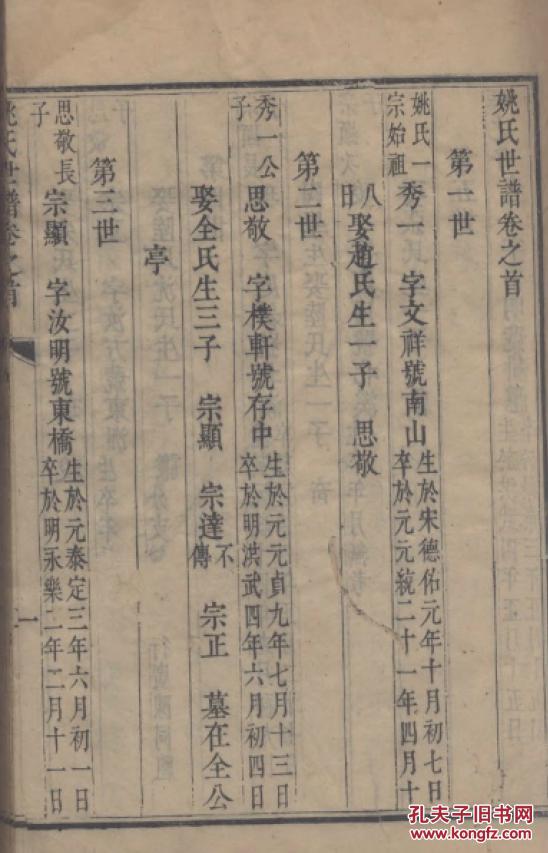 姚氏世譜卷之首
第一世
姚氏一
宗始祖
秀一　字文祥號南山
生於宋德佑元年十月初七日
卒於元元統二十一年四月十
八
日
娶趙氏生一子　思敬
第二世
秀一公
子
思敬　字樸軒號存中
生於元元貞九年七月十三日
卒於明洪武四年六月初四日
娶全氏生三子　宗顯　宗達
不
傳
宗正　墓在全公
亭
第三世
思敬長
子
宗顯　字汝明號東橋
生於元泰定三年六月初一日
卒於明永樂二年二月十一日
姚氏世譜卷之首
一
孔夫子旧书网
www.kongfz.com